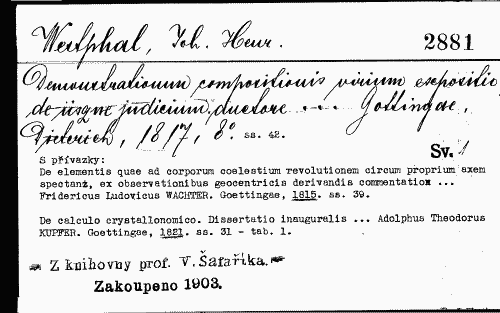 Westphal, Joh. Henr. 2881
Demonstrationum compositionis virium expositio
de iisque judicium. ductore ... Gottingae,
Dieterich, 1817, 8° ss. 42.
Sv. 1
S přívazky:
De elementis quae ad corporum coelestium revolutionem circum proprium axem
spectant, ex observationibus geocentricis derivandis commentation ...
Fridericus Ludovicus WACHTER. Goettingae, 1815. ss. 39.
De calculo crystallonomico. Dissertatio inauguralis ... Adolphus Theodorus
KUPFER. Goettingae, 1821. ss. 31 - tab. 1.
Z knihovny prof. V. Šafaříka.
Zakoupeno 1903.